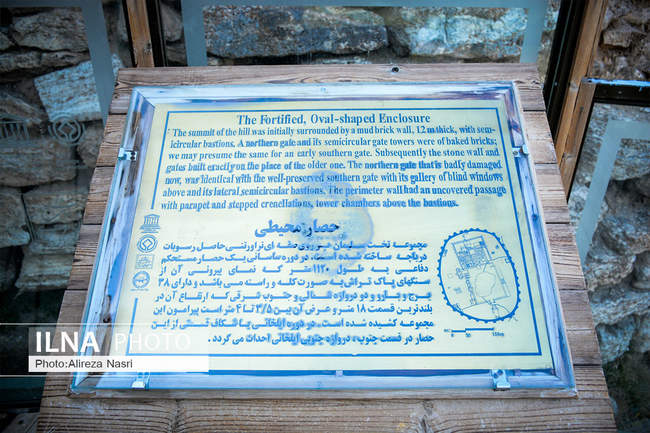 The Fortified, Oval-shaped Enclosure
The summit of the hill was initially surrounded by a mud brick wall, 12 m thick, with semi-
circular bastions. A northern gate and its semicircular gate towers were of baked bricks;
we may presume the same for an early southern gate. Subsequently the stone wall and
gates built exactly on the place of the older one. The northern gate that is badly damaged
now, was identical with the well-preserved southern gate with its gallery of blind windows
above and its lateral semicircular bastions. The perimeter wall had an uncovered passage
with parapet and stepped crenellations, tower chambers above the bastions.
حصار محیطی
مجموعه تخت سلیمان بر روی صفه ای تراورتنی حاصل رسوبات
دریاچه ساخته شده است. در دوره ساسانی یک حصار مستحکم
دفاعی به طول ۱۱۲۰ متر که نمای بیرونی آن از
سنگهای پاک تراش به صورت کله و راسته می باشد و دارای ۳۸
برج و بارو و دو دروازه شمالی و جنوب شرقی که ارتفاع آن در
بلندترین قسمت ۱۸ متر و عرض آن بین ۳/۵ تا ۴ متر است پیرامون این
مجموعه کشیده شده است. در دوره ایلخانی با شکافتن قسمتی از این
حصار در قسمت جنوب، دروازه جنوبی ایلخانی احداث می گردد.
ILNA PHOTO
Photo:Alireza Nasri